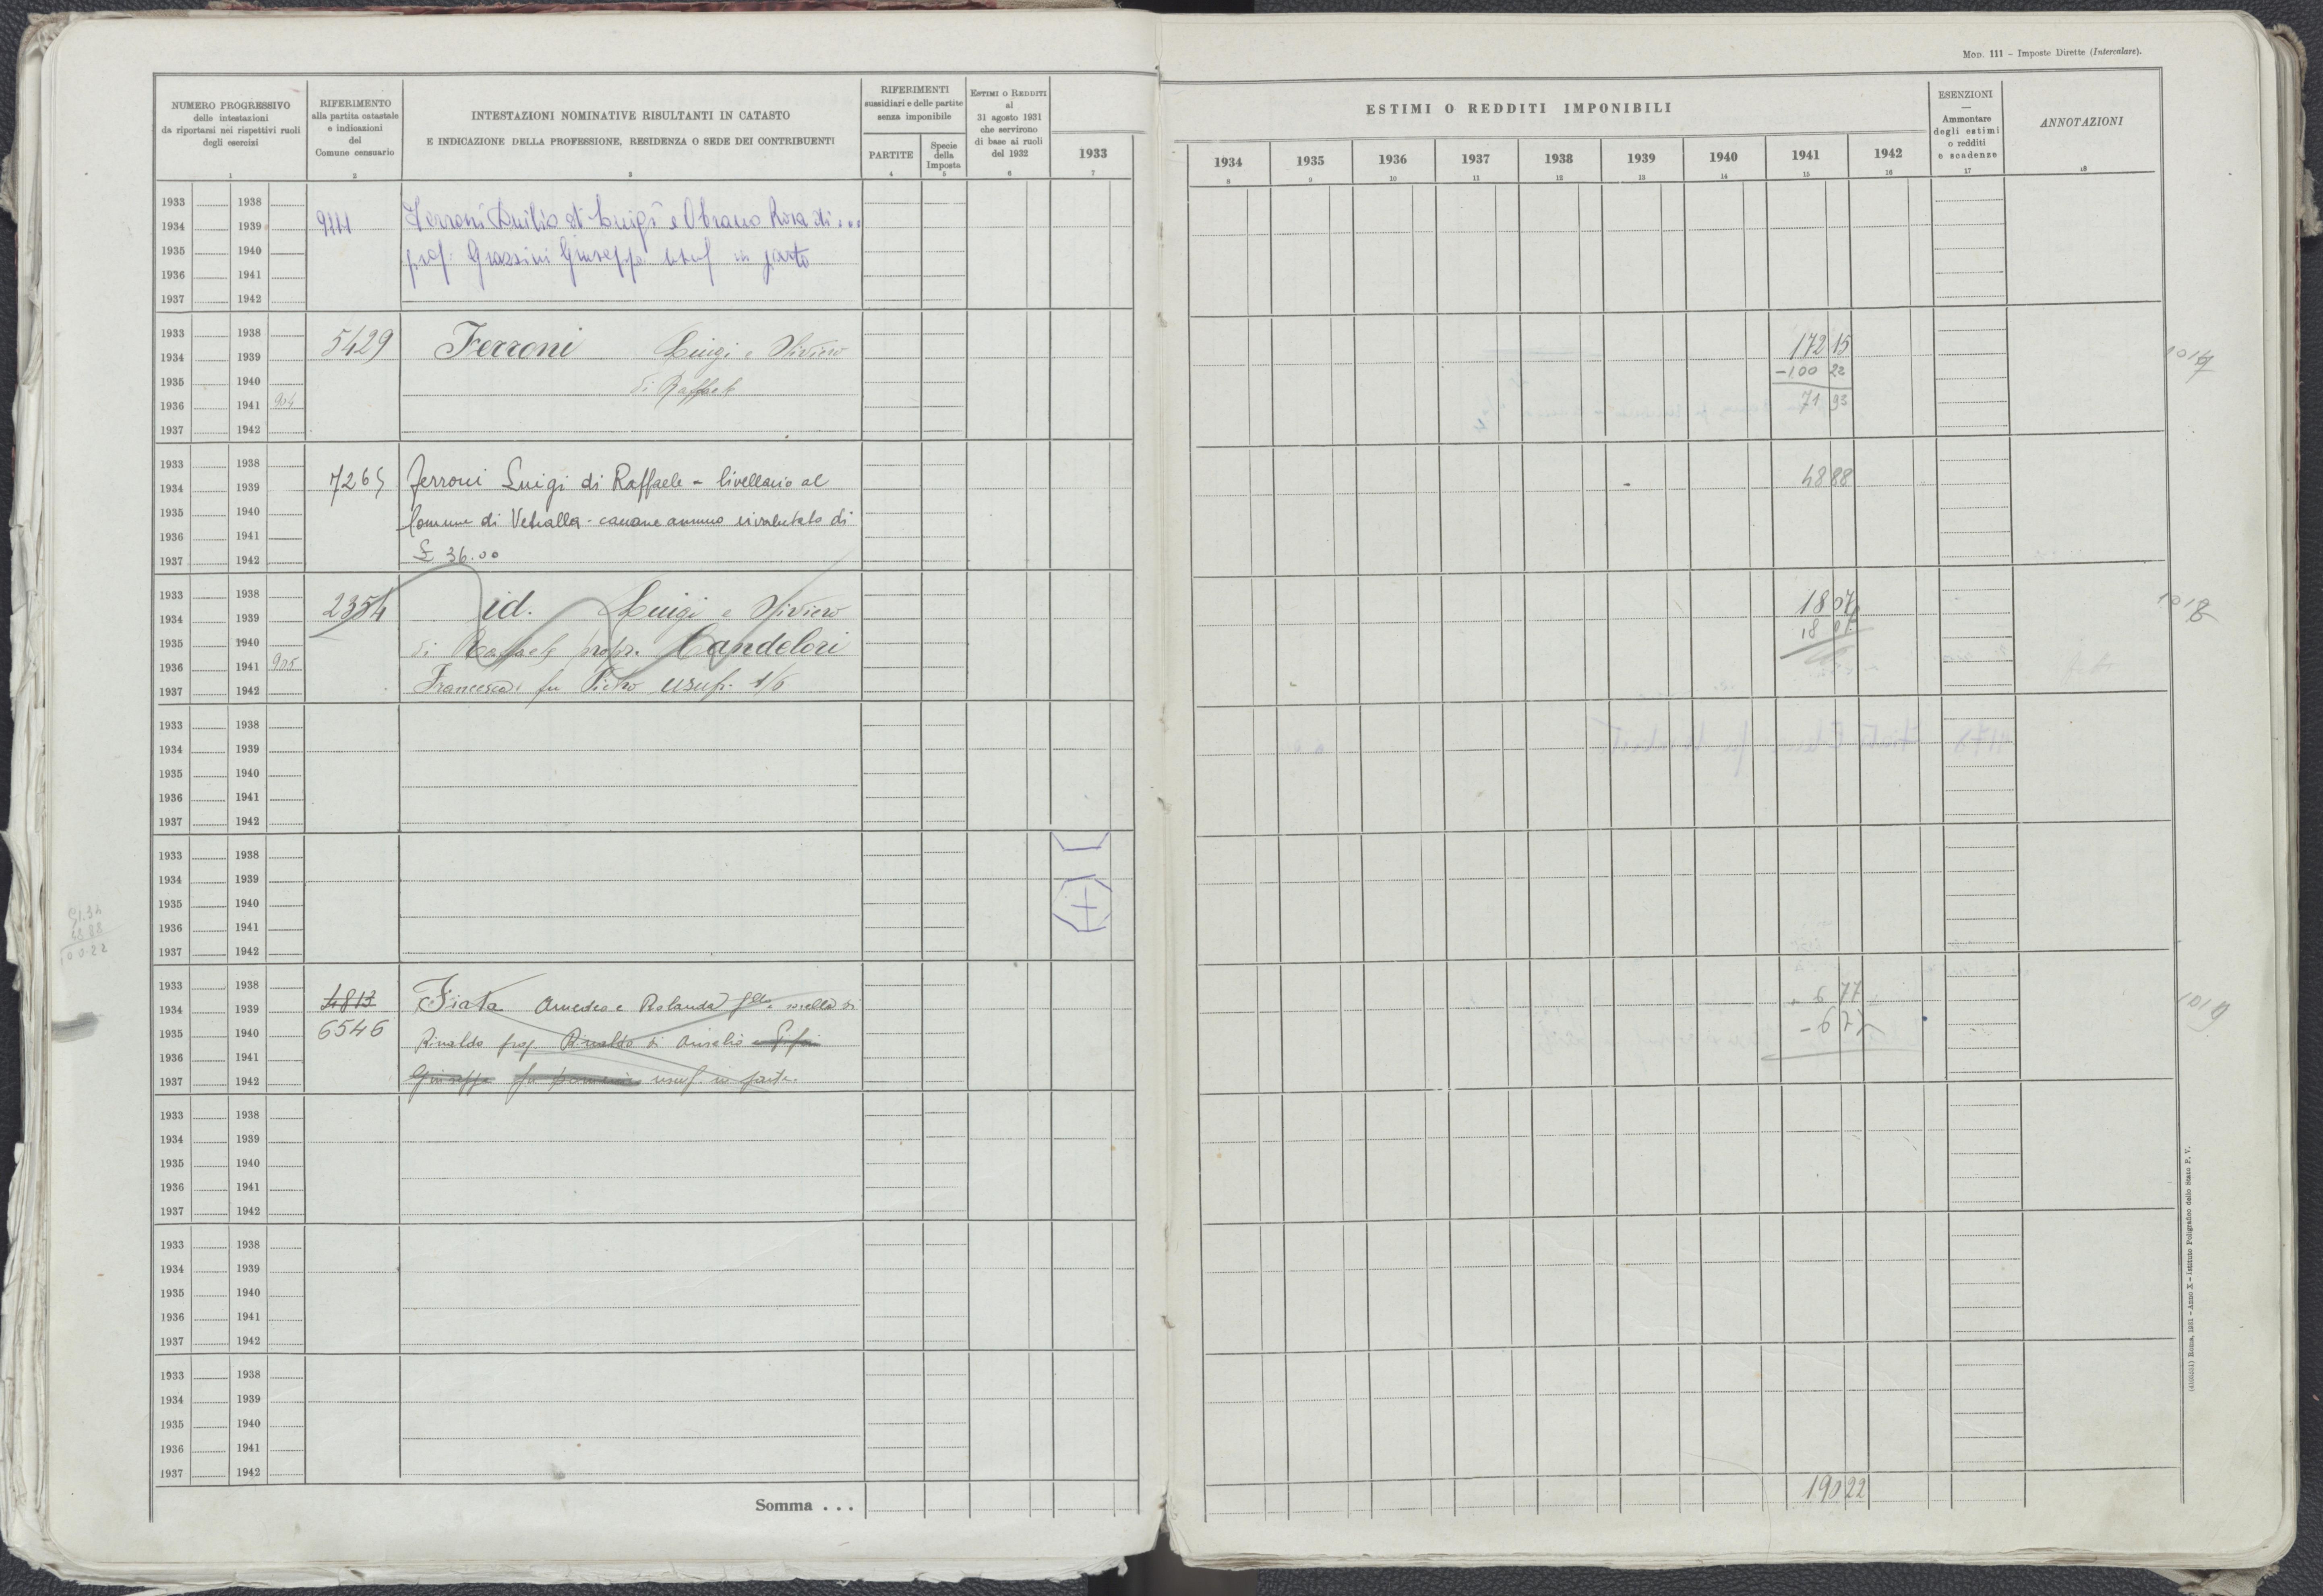 Mod. 111 – Imposte Dirette (Intercalare).
NUMERO PROGRESSIVO
delle intestazioni
da riportarsi nei rispettivi ruoli
degli esercizi
1
RIFERIMENTO
alla partita catastale
e indicazioni
del
Comune censuario
2
INTESTAZIONI NOMINATIVE RISULTANTI IN CATASTO
E INDICAZIONE DELLA PROFESSIONE, RESIDENZA O SEDE DEI CONTRIBUENTI
3
RIFERIMENTI
sussidiari e delle partite
senza imponibile
PARTITE
4
Specie
della
Imposta
5
Estimi o Redditi
al
31 agosto 1931
che servirono
di base ai ruoli
del 1932
6
1933
7
ESTIMI O REDDITI IMPONIBILI
1934 1935 1936 1937 1938 1939 1940 1941 1942
8 9 10 11 12 13 14 15 16
ESENZIONI
—
Ammontare
degli estimi
o redditi
e scadenze
17
ANNOTAZIONI
18
1933 1938
1934 1939 9111 Ferroni Duilio di Luigi e Obrano Rosa di ...
1935 1940 prop. Grassini Giuseppe usuf in parte
1936 1941
1937 1942
1933 1938 5429 Ferroni Luigi e Siviero 172 15 1017
1934 1939 -100 22
1935 1940 di Raffaele
1936 1941 904 71 93
1937 1942
1933 1938
1934 1939 7265 Ferroni Luigi di Raffaele - livellario al 48 88
1935 1940 Comune di Vetralla - canone annuo rivalutato di
1936 1941
1937 1942 £ 36.00
1933 1938 2354 id. Luigi e Siviero 18 07 1018
1934 1939 18 07
1935 1940 di Raffaele propr. Candelori
1936 1941 905
1937 1942 Francesca fu Pietro usuf. 1/6
1933 1938
1934 1939
1935 1940
1936 1941
1937 1942
1933 1938
1934 1939
1935 1940
1936 1941
1937 1942
51.34
48 88
100.22
1933 1938 4813 Fiata Amedeo e Rolanda sorella di + 6 77 1019
1934 1939
1935 1940 6546 Rinaldo prop. Rinaldo di Aurelio - 6 77
1936 1941
1937 1942 Giuseppe fu Domenico usuf. in parte.
1933 1938
1934 1939
1935 1940
1936 1941
1937 1942
1933 1938
1934 1939
1935 1940
1936 1941
1937 1942
1933 1938
1934 1939
1935 1940
1936 1941
1937 1942
Somma . . . 190 22
Roma, 1931 – Anno X – Istituto Poligrafico dello Stato P. V.